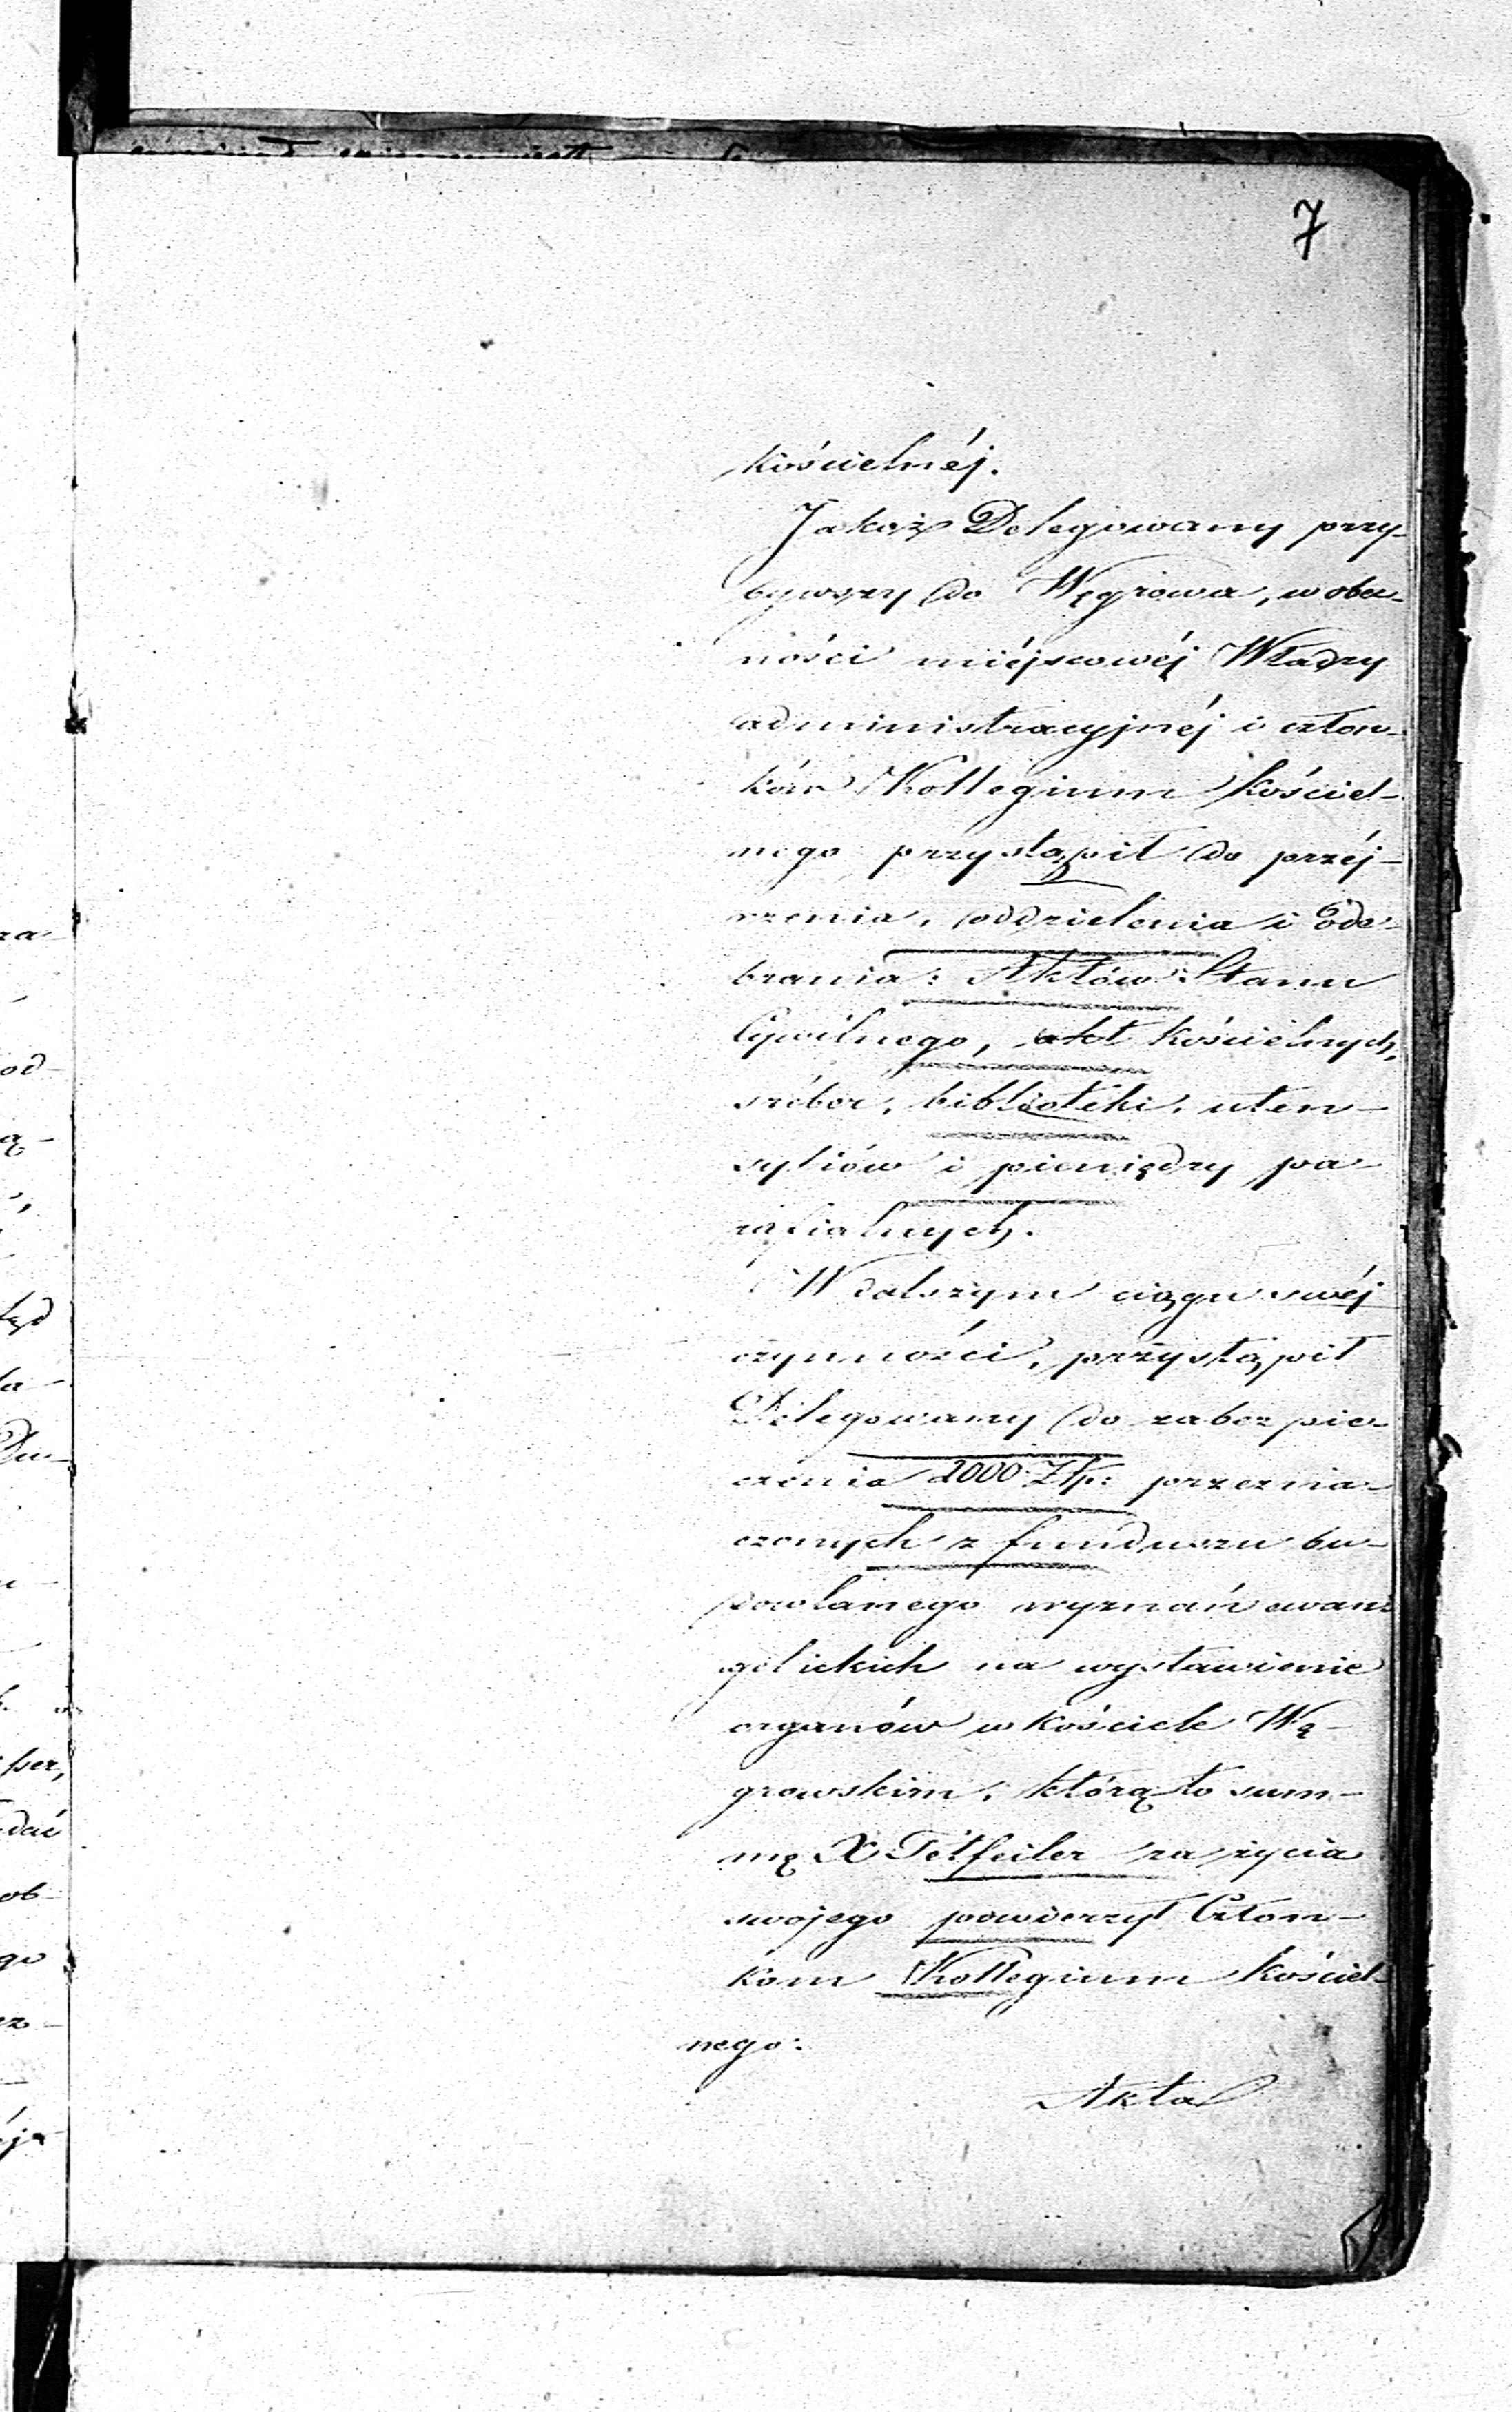 7
kościelnéj.
Jakoż Delegowany przy-
bywszy do Węgrowa, w obec-
ności miéjscowéj Władzy
administracyjnéj i człon-
ków Kollegium kościel-
nego przystąpił do przéj-
rzenia, oddzielenia i ode-
brania: Aktów Stanu
Cywilnego, akt kościelnych,
sréber, biblioteki, uten-
syliów i pieniędzy pa-
rafialnych.
W dalszym ciągu swéj
czynności, przystąpił
Delegowany do zabezpie-
czenia 2000 Złp: przezna-
czonych z funduszu bu-
dowlanego wyznań ewan-
gelickich na wystawienie
organów w kościele Wę-
growskim, którą to sum-
mę X Tetfeiler za życia
swojego powierzył Człon-
kom Kollegium kościel-
nego:
Akta